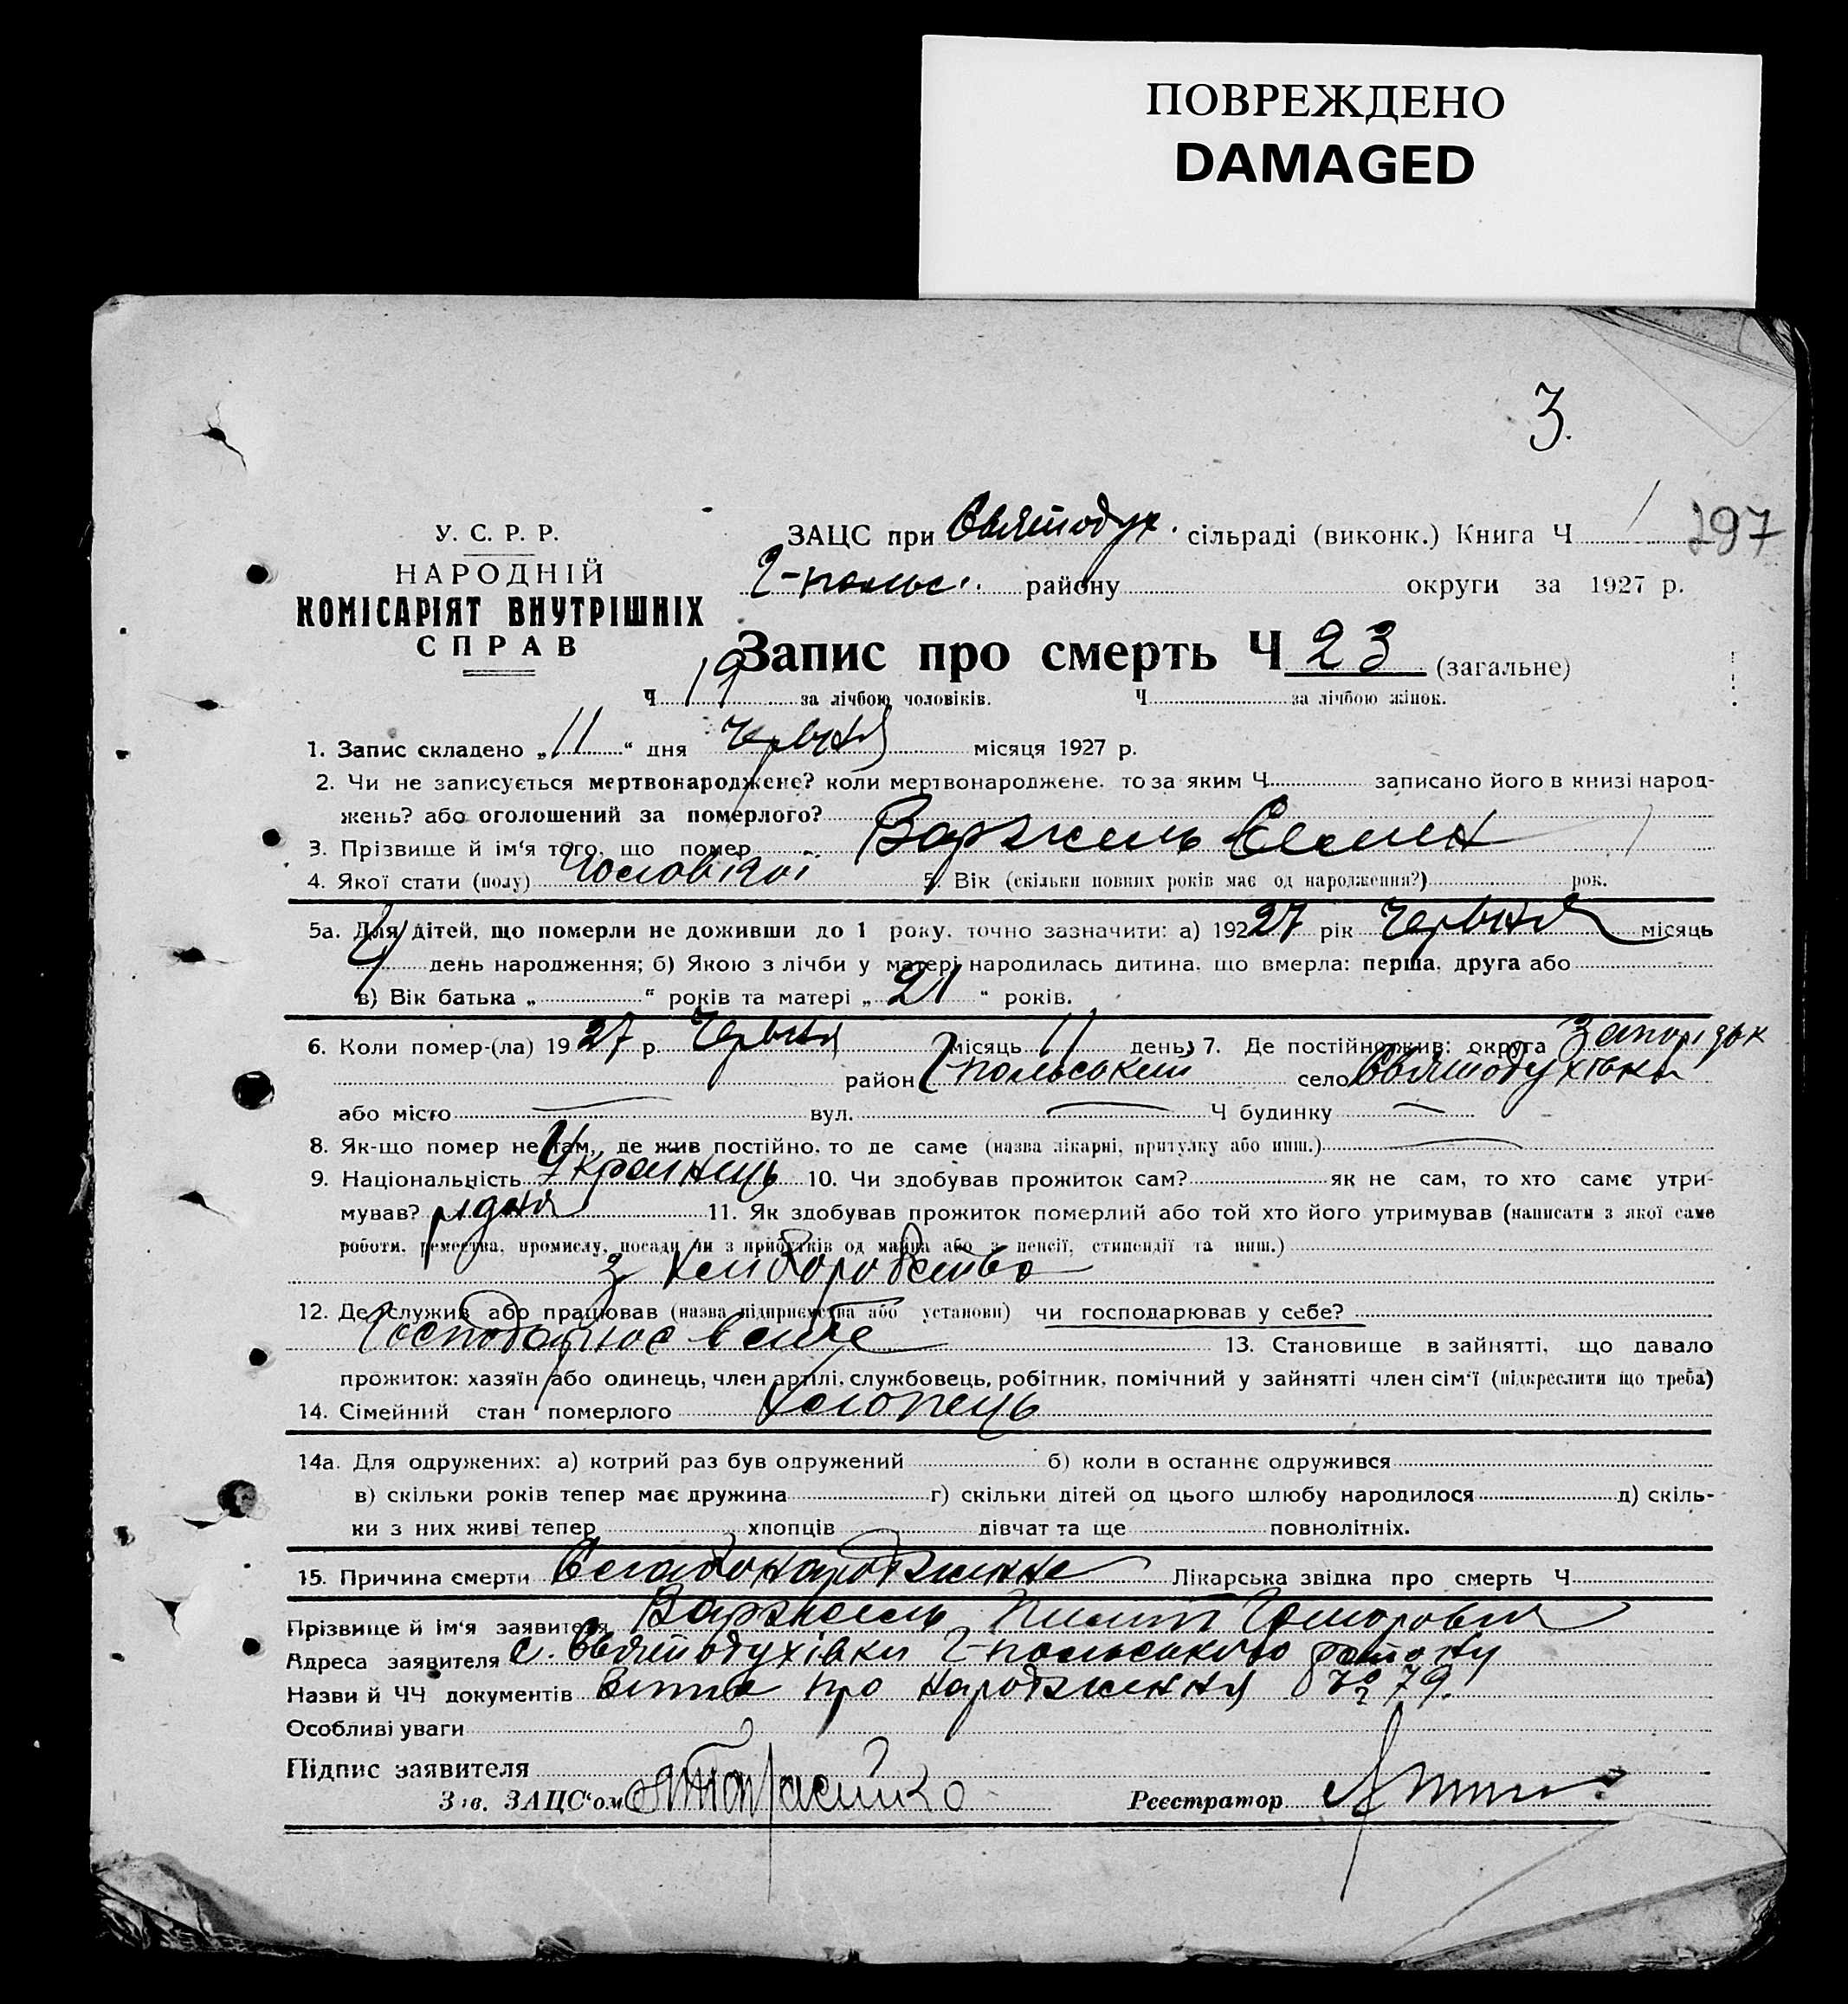 ПОВРЕЖДЕНО
DAMAGED
3.
297
У. С. Р. Р.
НАРОДНІЙ
КОМІСАРІЯТ ВНУТРІШНІХ
СПРАВ
ЗАЦС при Святодух. сільраді (виконк.) Книга Ч
Г-польс.. району округи за 1927 р.
Запис про смерть Ч 23 (загальне)
Ч 19 за лічбою чоловіків. Ч за лічбою жінок.
1. Запис складено „11“ дня Червня місяця 1927 р.
2. Чи не записується мертвонароджене? коли мертвонароджене, то за яким Ч записано його в книзі народ-
жень? або оголошений за померлого?
3. Прізвище й ім'я того, що помер Варжель Семен
4. Якої стати (полу) Чоловічої 5. Вік (скільки повних років має од народження?) рок.
5а. Для дітей, що померли не доживши до 1 року, точно зазначити: а) 192 27 рік Червня місяць
4 день народження; б) Якою з лічби у матері народилась дитина, що вмерла: перша, друга або
в) Вік батька „ “ років та матері „ 21 “ років.
6. Коли помер-(ла) 19 27 р. Червня місяць 11 день; 7. Де постійно жив: округа Запоріздьк
район Г польський село Святодухівки
або місто вул. Ч будинку
8. Як-що помер не там, де жив постійно, то де саме (назва лікарні, притулку або инш.)
9. Національність Українець 10. Чи здобував прожиток сам? як не сам, то хто саме утри-
мував? рідня 11. Як здобував прожиток померлий або той хто його утримував (написати з якої саме
роботи, ремества, промислу, посади чи з прибутків од майна або з пенсії, стипендії та инш.)
з хлиборобства
12. Де служив або працював (назва підприємства або установи) чи господарював у себе?
Господарює в себе 13. Становище в зайнятті, що давало
прожиток: хазяїн або одинець, член артілі, службовець, робітник, помічний у зайнятті член сім'ї (підкреслити що треба)
14. Сімейний стан померлого Хлопець
14а. Для одружених: а) котрий раз був одружений б) коли в останнє одружився
в) скільки років тепер має дружина г) скільки дітей од цього шлюбу народилося д) скіль-
ки з них живі тепер хлопців дівчат та ще повнолітніх.
15. Причина смерти Слабонародження Лікарська звідка про смерть Ч
Прізвище й ім'я заявителя Варжель Пилип
Адреса заявителя с. Святодухівки Г-польського району
Назви й ЧЧ документів Витяг про народження № 79.
Особливі уваги
Підпис заявителя
Зав. ЗАЦС'ом Тарасенко Реєстратор